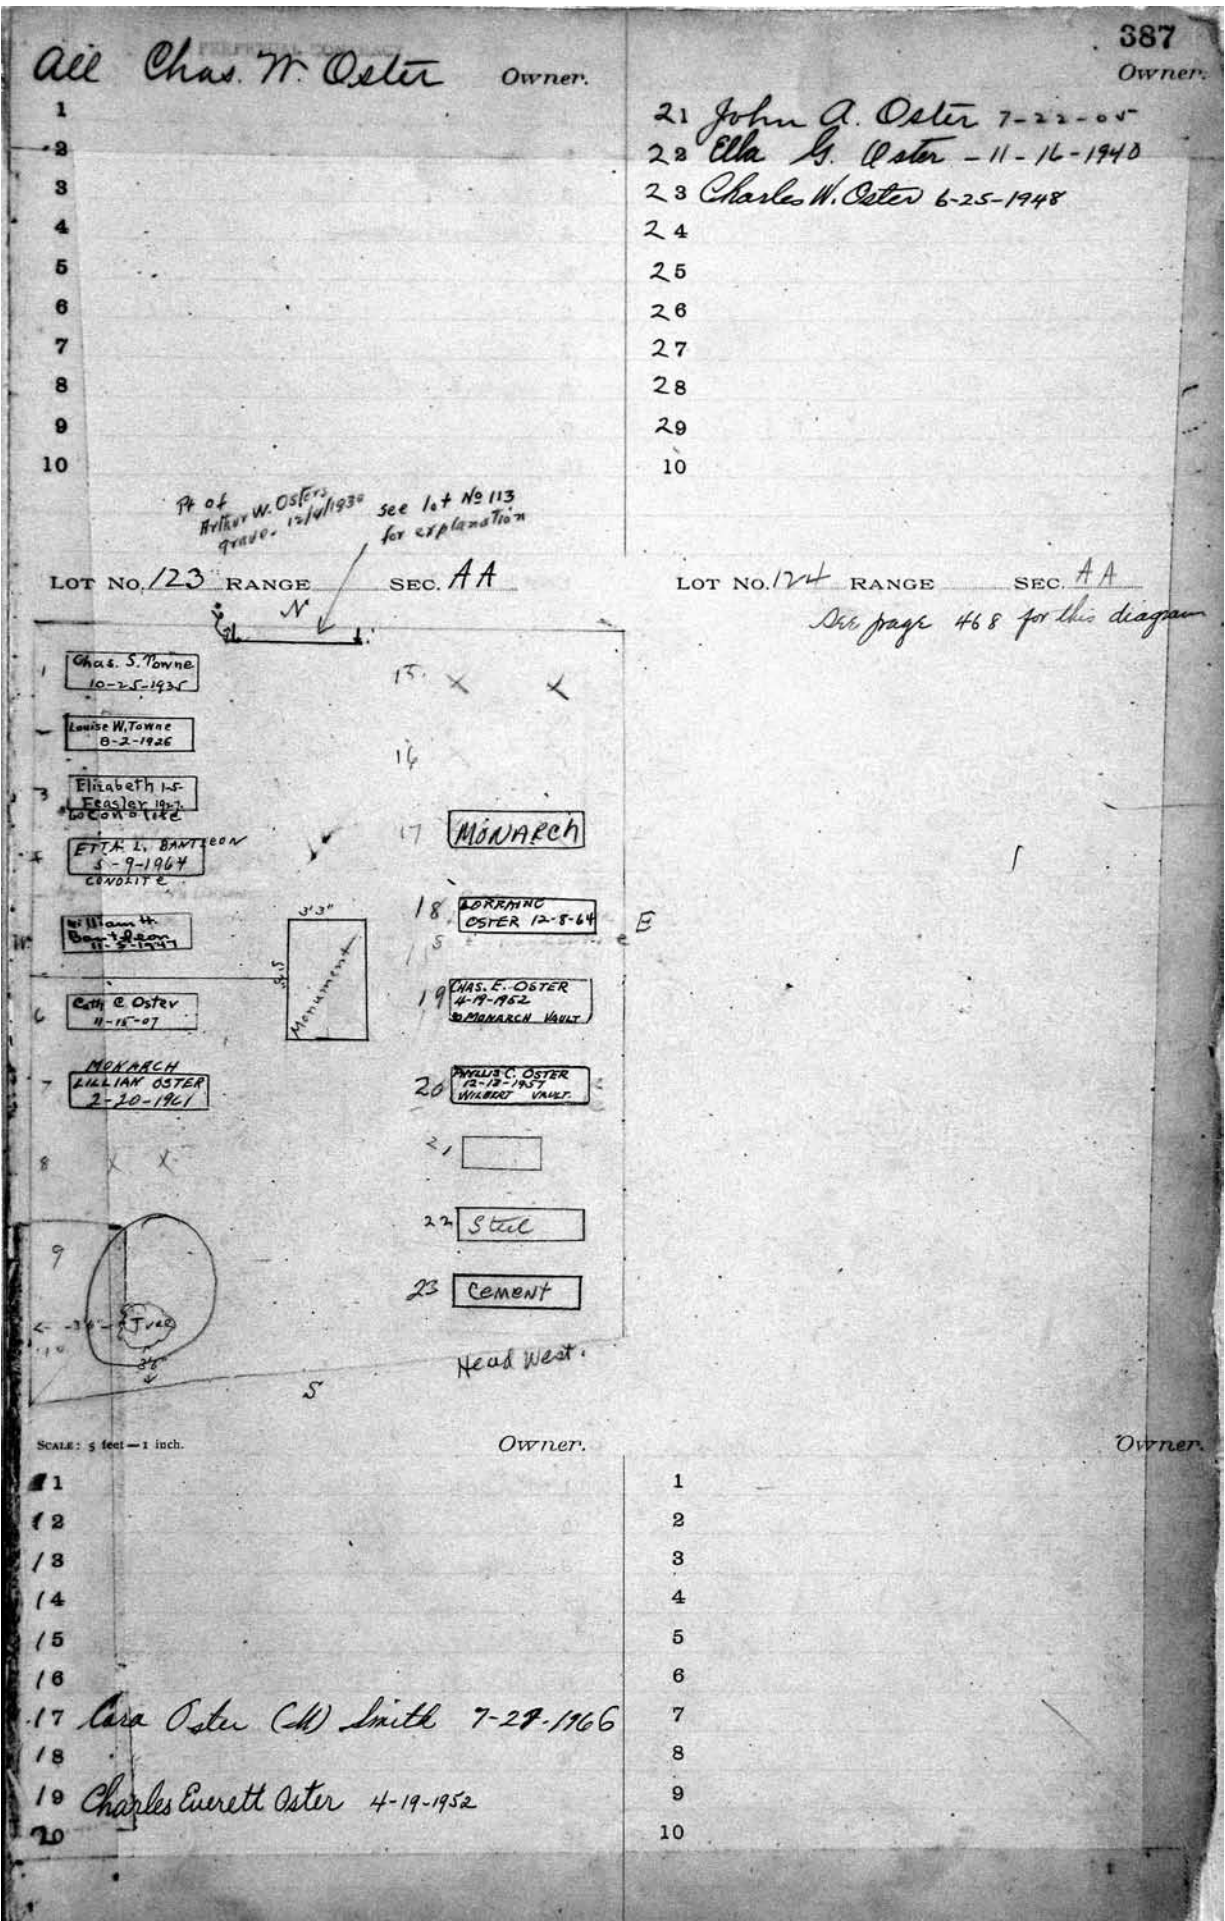 387
All Chas. W. Oster Owner.
Owner.
1
2
3
4
5
6
7
8
9
10
21 John A. Oster 7-22-05
22 Ella G. Oster - 11-16-1940
23 Charles W. Oster 6-25-1948
24
25
26
27
28
29
10
Pt of
Arthur W. Osters
grave. 12/4/1930
see lot No 113
for explanation
LOT NO. 123 RANGE SEC. AA
LOT NO. 124 RANGE SEC. AA
See page 468 for this diagram
N
1 Chas. S. Towne
10-25-1935
Louise W. Towne
8-2-1926
3 Elizabeth 1-5-
Feasler 1927
ETTA L. BANTLEON
5-9-1964
CONOLITE
William H.
Bantleon
11-5-1947
6 Cath C Oster
11-15-07
MONARCH
7 LILLIAN OSTER
2-20-1961
8 X X
9
Tree
3'6"
3'3"
Monument
15. X X
16
17 MONARCH
18 LORRAINE
OSTER 12-8-64
E
19 CHAS. E. OSTER
4-19-1952
MONARCH VAULT
20 PHYLLIS C. OSTER
12-12-1957
WILBERT VAULT.
21
22 Steel
23 CEMENT
Head West.
S
SCALE: 5 feet—1 inch.
Owner.
Owner.
11
12
13
14
15
16
17 Cora Oster (M) Smith 7-27-1966
18
19 Charles Everett Oster 4-19-1952
20
1
2
3
4
5
6
7
8
9
10